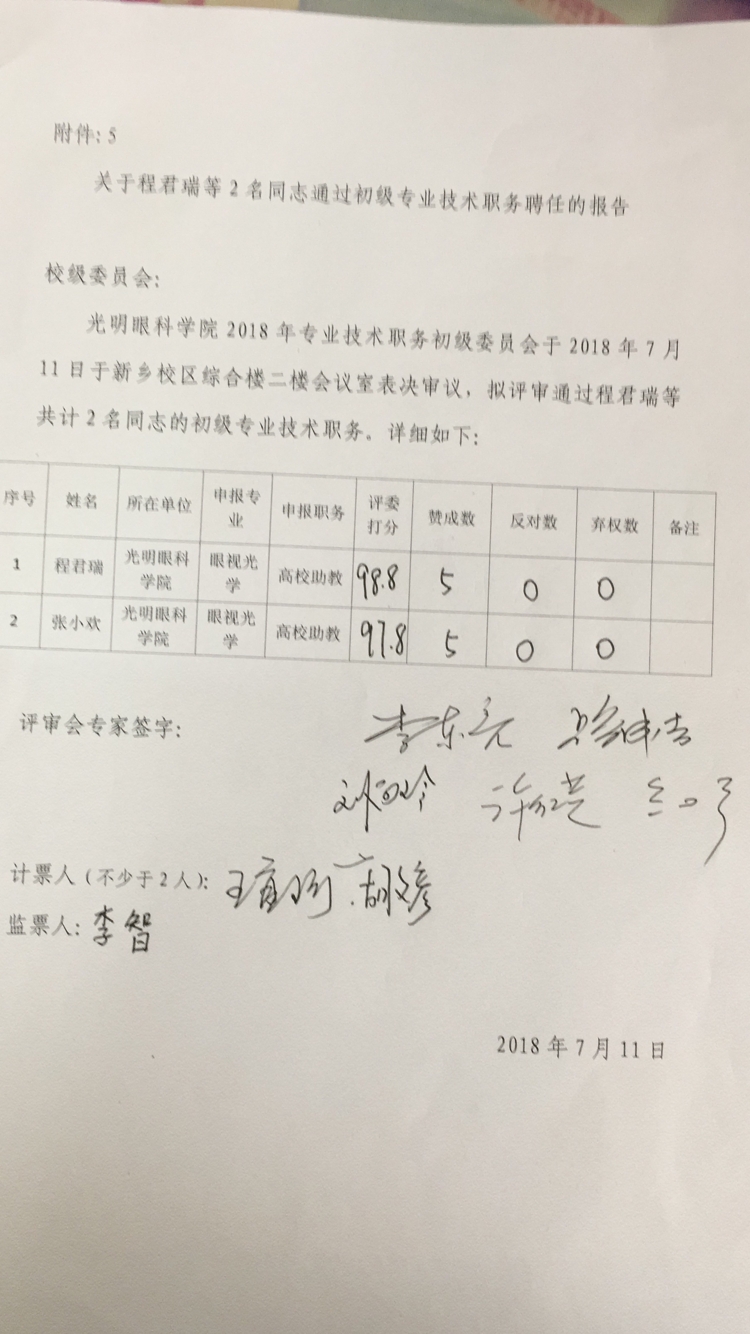 附件:5
关于程君瑞等2名同志通过初级专业技术职务聘任的报告
校级委员会:
光明眼科学院2018年专业技术职务初级委员会于2018年7月
11日于新乡校区综合楼二楼会议室表决审议，拟评审通过程君瑞等
共计2名同志的初级专业技术职务。详细如下:
序号 姓名 所在单位 申报专业 申报职务 评委打分 赞成数 反对数 弃权数 备注
1 程君瑞 光明眼科学院 眼视光学 高校助教 98.8 5 0 0
2 张小欢 光明眼科学院 眼视光学 高校助教 97.8 5 0 0
评审会专家签字: 李东亮
计票人(不少于2人):
监票人:李智
2018年7月11日